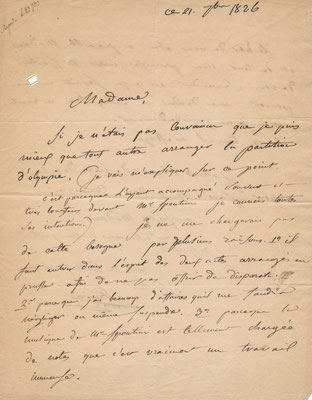 ce 21 7bre 1826
Madame,
Si je n'étais pas convaincu que je puis
mieux que tout autre arranger la partition
d'olympie. (je vais m'expliquer sur ce point
c'est parceque l'ayant accompagné souvent et
très longtems devant Mr Spontini je connais toutes
ses intentions) je ne me chargerais pas
de cette besogne par plusieurs raisons. 1º il
faut entrer dans l'esprit des deux actes arrangés en
prusse afin de ne pas offrir de disparate.
2º parceque j'ai beaucoup d'affaires qu'il me faudra
négliger ou même suspendre. 3º parceque la
musique de Mr Spontini est tellement chargée
de notes que c'est vraiment un travail
immense.